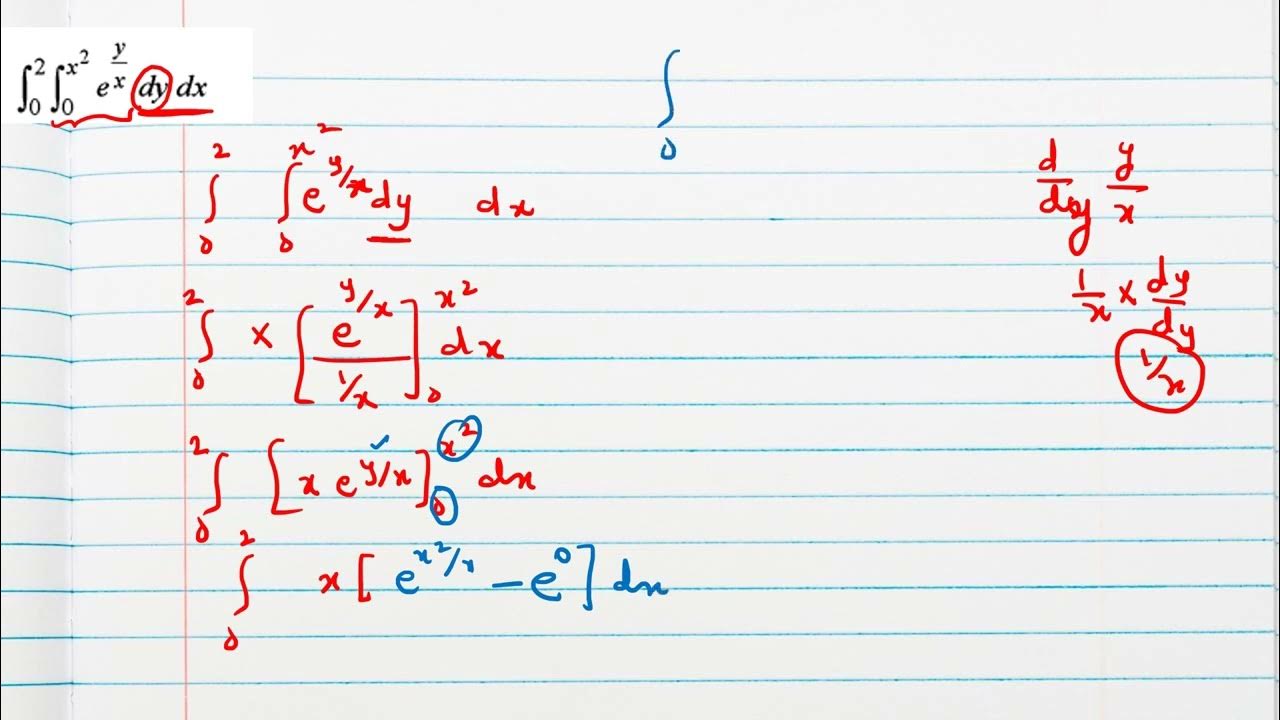 ∫₀² ∫₀^(x²) e^(y/x) dy dx
∫₀
∫₀² ∫₀^(x²) e^(y/x) dy dx
d/dy y/x
1/x × dy/dy
1/x
∫₀² × [e^(y/x) / (1/x)]₀^(x²) dx
∫₀² [x e^(y/x)]₀^(x²) dx
∫₀² x[e^(x²/x) − e⁰] dx